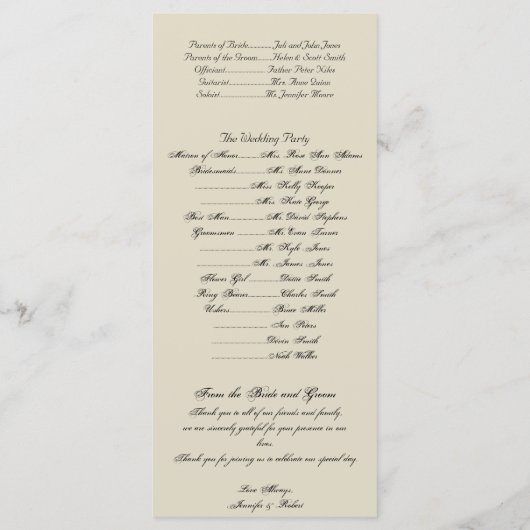 Parents of Bride............Juli and John Jones
Parents of the Groom........Helen & Scott Smith
Officiant.................... Father Peter Niles
Guitarist................Mrs. Anne Quinn
Soloist..................Ms. Jennifer Moore
The Wedding Party
Matron of Honor.........Mrs. Rose Ann Adams
Bridesmaids.........Ms. Anne Donner
........................Miss Kelly Keeper
........................Mrs. Kate George
Best Man..............Mr. David Stephens
Groomsmen ...........Mr.Evan Turner
........................ Mr. Kyle Jones
........................Mr. James Jones
Flower Girl ............Dottie Smith
Ring Bearer............Charles Smith
Ushers..................Bruce Miller
........................ Ian Peters
........................Devin Smith
........................Noah Walker
From the Bride and Groom
Thank you to all of our friends and family,
we are sincerely grateful for your presence in our
lives.
Thank you for joining us to celebrate our special day.
Love Always,
Jennifer & Robert